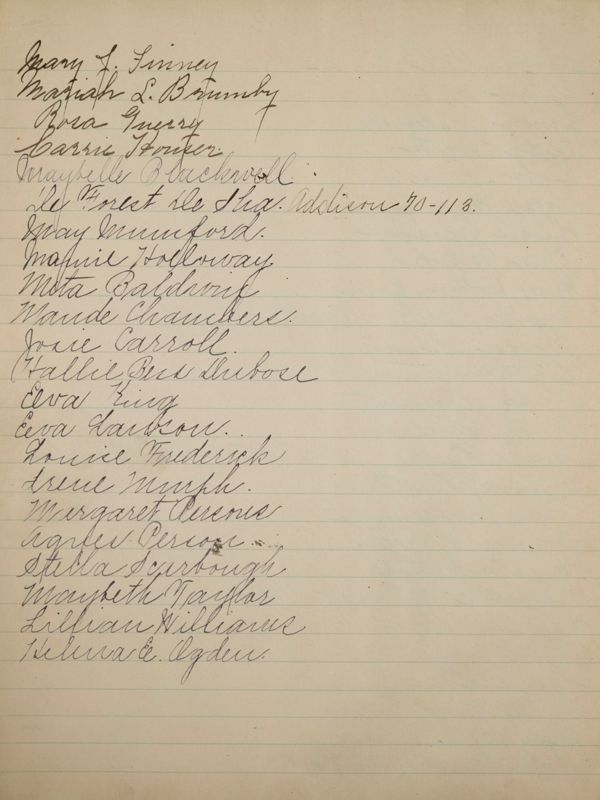 Mary F. Finney
Mariah L. Brumby
Rosa Guerry
Carrie Houser.
Maybelle Blackwell.
De Forest De Sha. Addison 70-113.
May Mumford.
Mamie Holloway
Meta Baldwin
Maude Chambers.
Josie Carroll.
Hallie Bess Dubose
Eeva King
Eeva Lawson.
Louise Frederick
Irene Murph.
Margaret Persons
Agnes Person
Stella Scarbough
Maybeth Taylor
Lillian Williams
E. Ogden.